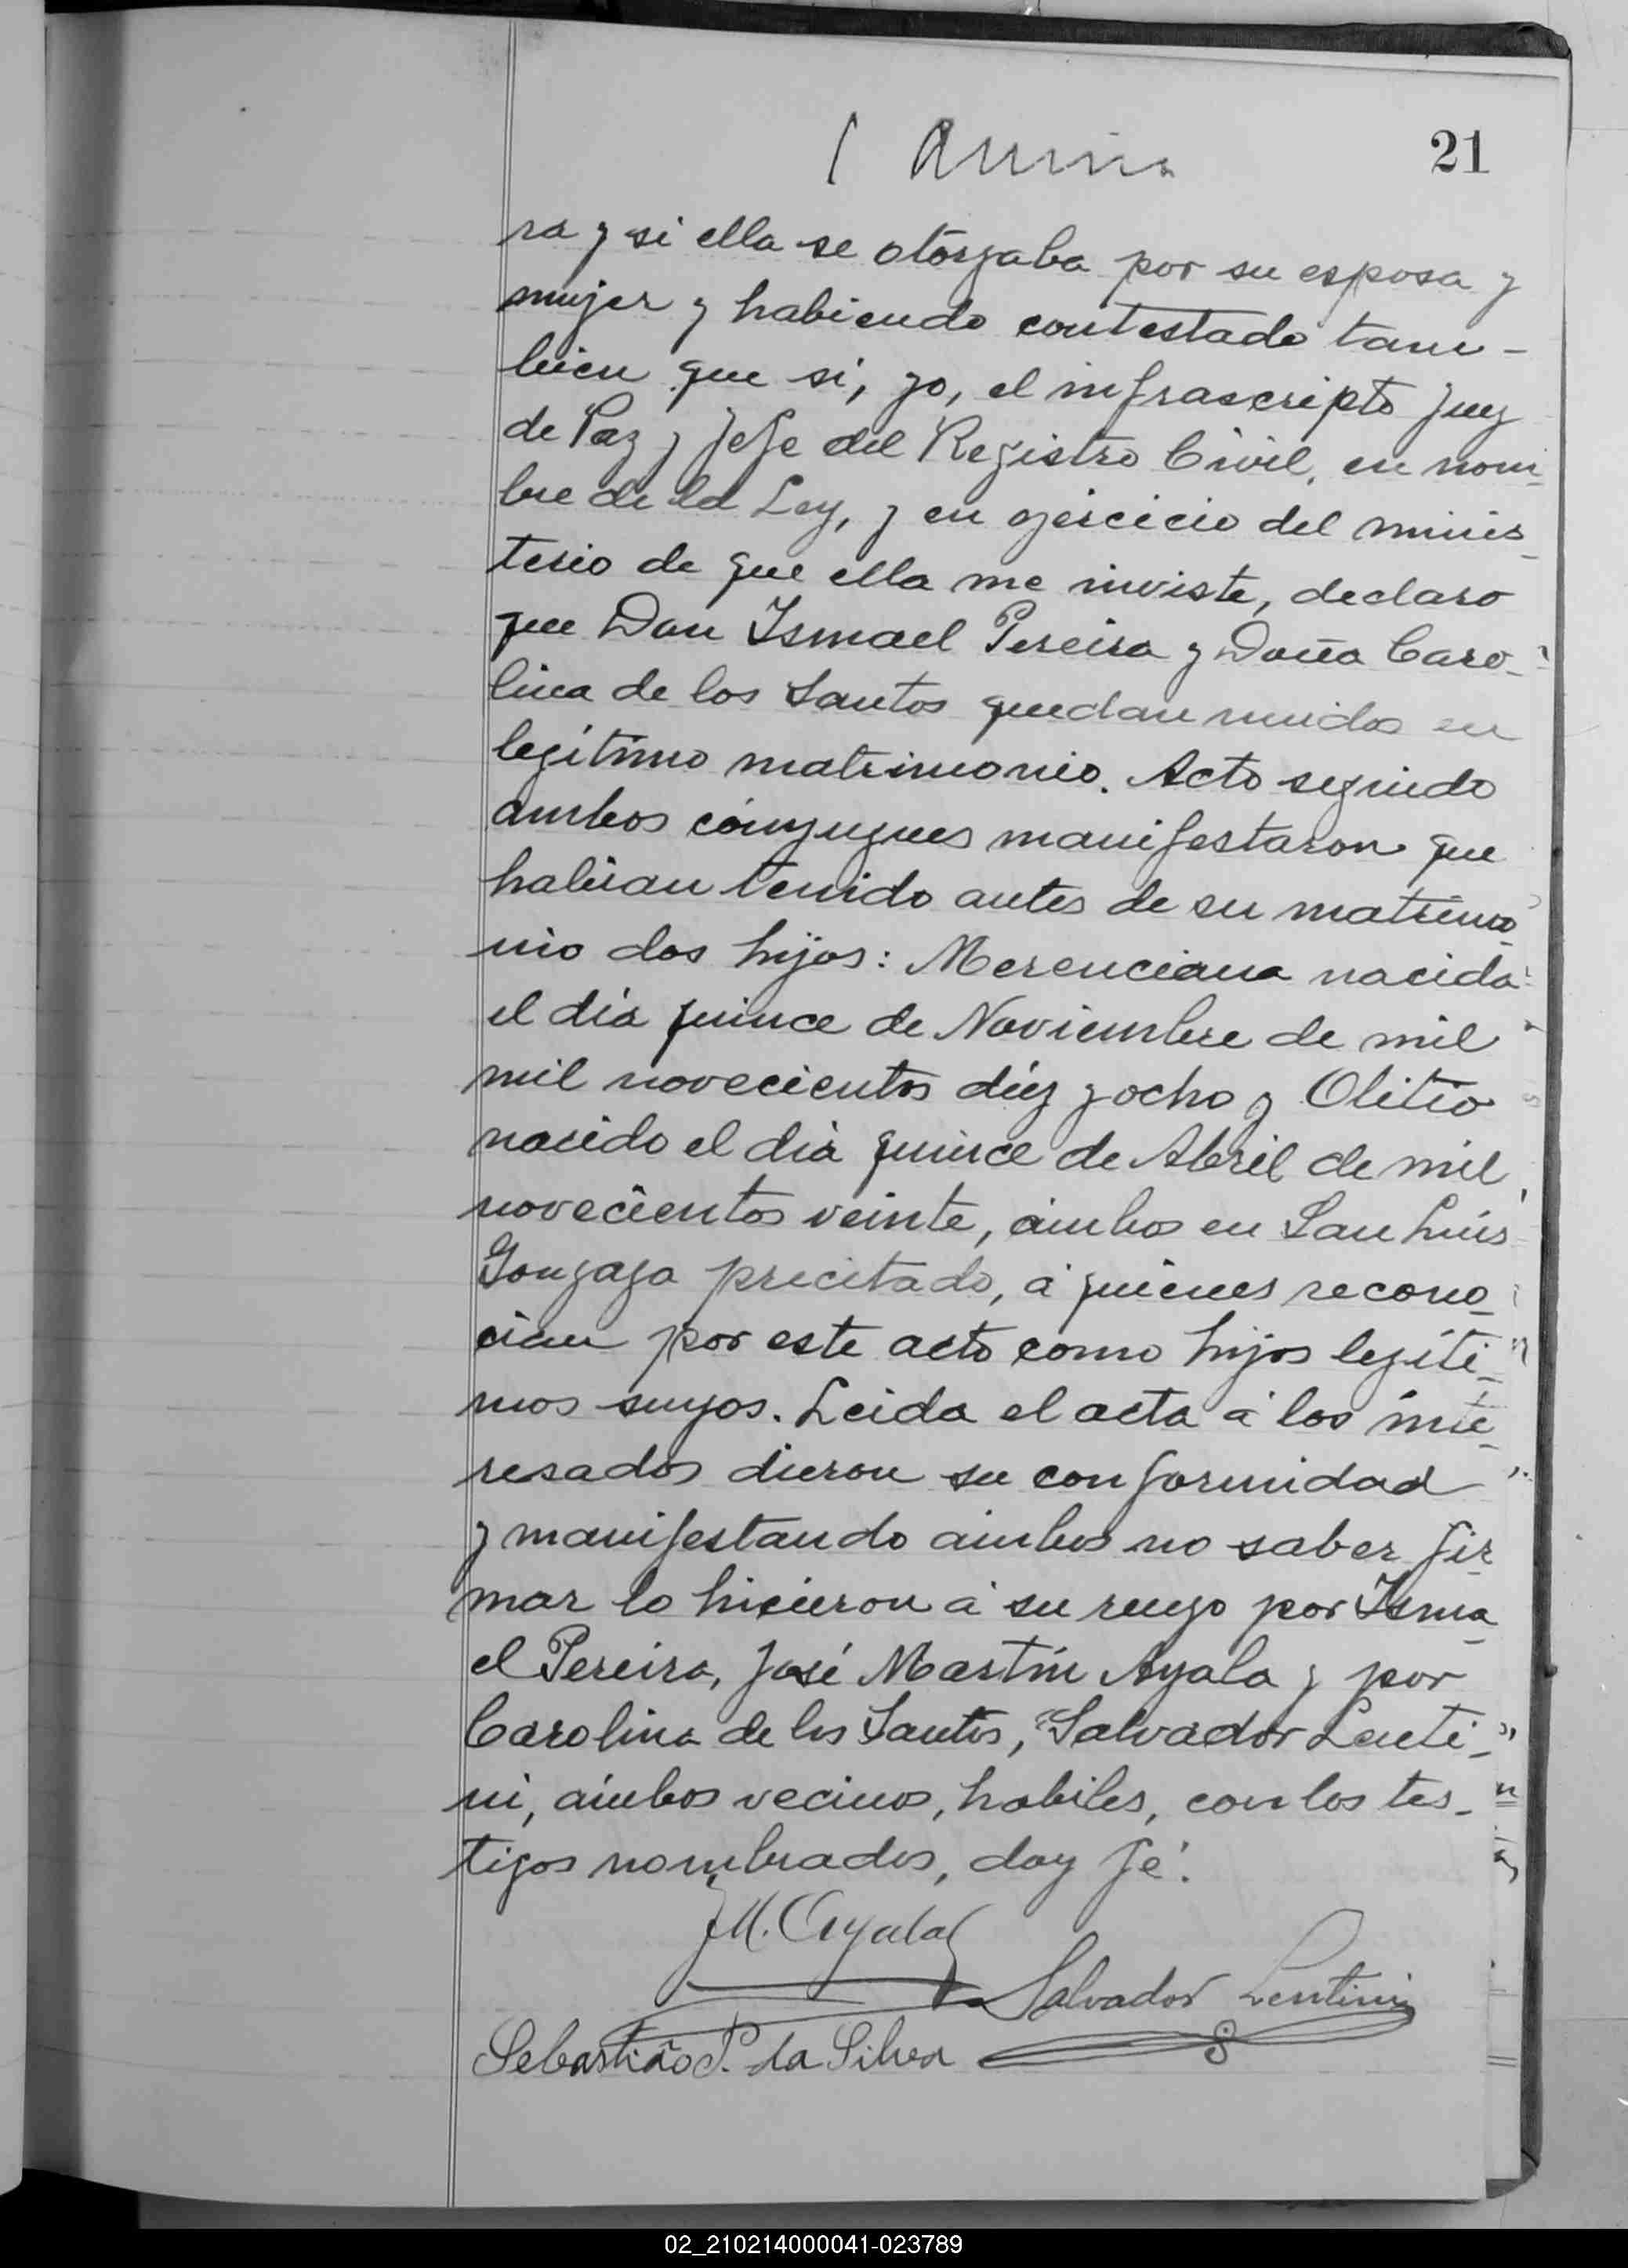 21
ra y si ella se otorgaba por su esposa y
mujer y habiendo contestado tam-
bien que si, yo, el infrascripto Juez
de Paz y Jefe del Registro Civil, en nom-
bre de la Ley, y en ejercicio del minis-
terio de que ella me inviste, declaro
que Don Ismael Pereira y Doña Caro-
lina de los Santos quedan unidos en
legítimo matrimonio. Acto seguido
ambos cónyugues manifestaron que
habian tenido antes de su matrimo-
nio dos hijos: Merenciana nacida
el día quince de Noviembre de mil
mil novecientos diez y ocho y Olitio
nacido el día quince de Abril de mil
novecientos veinte, ambos en San Luis
Gonzaga precitado, á quienes recono-
cian por este acto como hijos legíti-
mos suyos. Leida el acta á los inte-
resados dieron su conformidad
y manifestando ambos no saber fir-
mar lo hicieron á su ruego por Isma-
el Pereira, José Martín Ayala y por
Carolina de los Santos, Salvador Lenti-
ni, ambos vecinos, habiles, con los tes-
tigos nombrados, doy fé.
J M. Ayala
Salvador Lentini
Sebastião P. da Silva
02_210214000041-023789